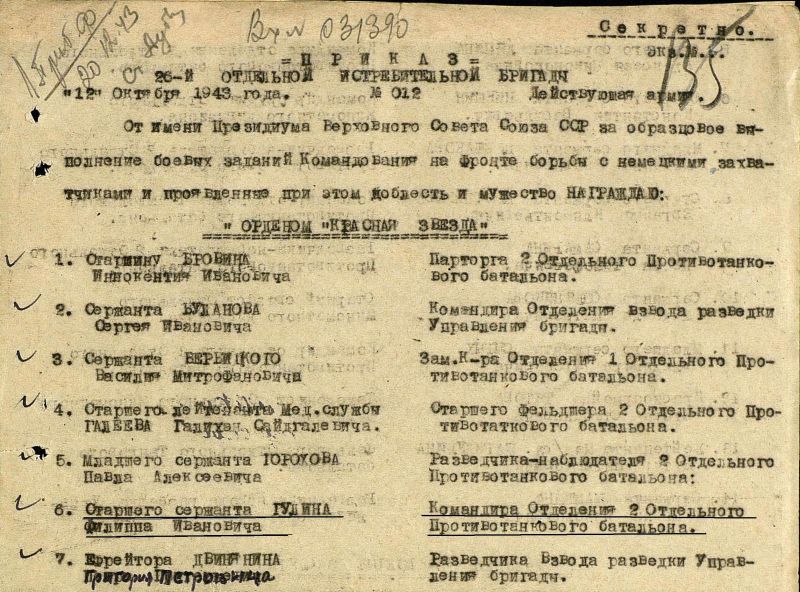 Вхл 031390
Секретно.
Экз.№...
135
=ПРИКАЗ=
26-й ОТДЕЛЬНОЙ ИСТРЕБИТЕЛЬНОЙ БРИГАДЫ
"12" Октября 1943 года. № 012 Действующая армия.
От имени Президиума Верховного Совета Союза ССР за образцовое вы-
полнение боевых заданий Командования на Фронте борьбы с немецкими захва-
тчиками и проявленные при этом доблесть и мужество НАГРАЖДАЮ:
" ОРДЕНОМ "КРАСНАЯ ЗВЕЗДА"
1. Старшину БРОВИНА Парторга 2 Отдельного Противотанко-
Иннокентия Ивановича вого батальона.
2. Сержанта БУЛАНОВА Командира Отделения взвода разведки
Сергея Ивановича Управления бригады.
3. Сержанта ВЕРБИЦКОГО Зам.К-ра Отделения 1 Отдельного Про-
Василия Митрофановича тивотанкового батальона.
4. Старшего лейтенанта Мед.службы Старшего Фельдшера 2 Отдельного Про-
ГАЛЕЕВА Сайдгалевича. тивотаткового батальона.
5. Младшего сержанта ГОРОХОВА Разведчика-наблюдателя 2 Отдельного
Павла Алексеевича Противотанкового батальона:
6. Старшего сержанта ГУЛИНА Командира Отделения 2 Отдельного
Филиппа Ивановича Противотанкового батальона.
7. Ефрейтора ДВИНЯНИНА Разведчика Взвода разведки Управ-
Григория Петровича ления бригады.